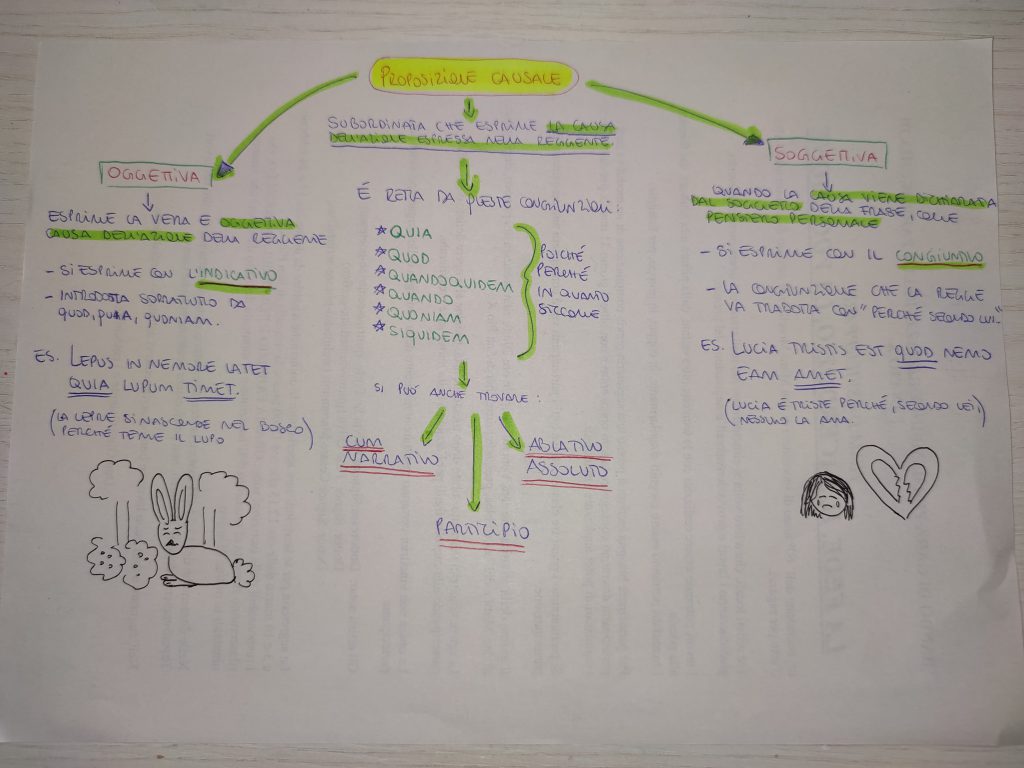 PROPOSIZIONE CAUSALE
SUBORDINATA CHE ESPRIME LA CAUSA
DELL'AZIONE ESPRESSA NELLA REGGENTE.
OGGETTIVA
ESPRIME LA VERA E OGGETTIVA
CAUSA DELL'AZIONE DELLA REGGENTE
- SI ESPRIME CON L'INDICATIVO
- INTRODOTTA SOPRATUTTO DA
QUOD, QUIA, QUONIAM.
ES. LEPUS IN NEMORE LATET
QUIA LUPUM TIMET.
(LA LEPRE SI NASCONDE NEL BOSCO)
PERCHÉ TEME IL LUPO
É RETTA DA QUESTE CONGIUNZIONI:
QUIA
QUOD
QUANDOQUIDEM
QUANDO
QUONIAM
SIQUIDEM
POICHÉ
PERCHÉ
IN QUANTO
SICCOME
SI PUÓ ANCHE TROVARE:
CUM
NARRATIVO
PARTICIPIO
ABLATIVO
ASSOLUTO
SOGGETTIVA
QUANDO LA CAUSA VIENE DICHIARATA
DAL SOGGETTO DELLA FRASE, COME
PENSIERO PERSONALE
- SI ESPRIME CON IL CONGIUNTIVO
- LA CONGIUNZIONE CHE LA REGGE
VA TRADOTTA CON "PERCHÉ SECONDO LUI.."
ES. LUCIA TRISTIS EST QUOD NEMO
EAM AMET.
(LUCIA É TRISTE PERCHÉ, SECONDO LEI,)
NESSUNO LA AMA.